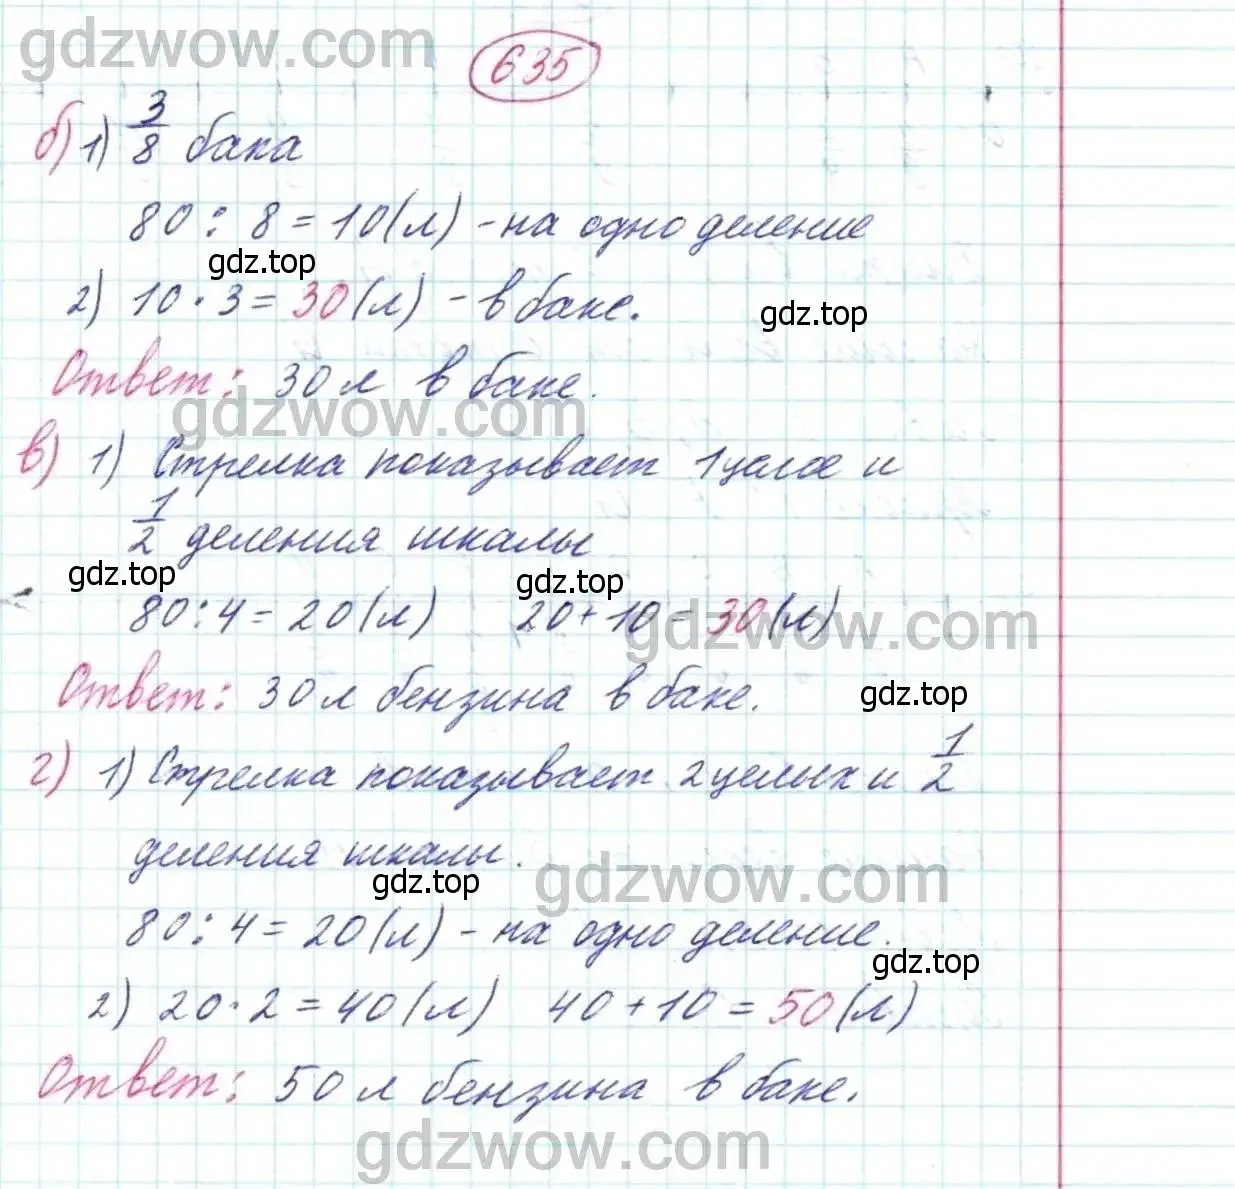 gdzwow.com
635
б) 1) 3/8 бака
80 : 8 = 10 (л) - на одно деление
gdz.top
2) 10 · 3 = 30 (л) - в баке.
gdz.top
Ответ: 30 л в баке.
gdzwow.com
в) 1) Стрелка показывает 1 целое и
1/2 деления шкалы
gdz.top gdz.top
80 : 4 = 20 (л) 20 + 10 = 30 (л)
gdzwow.com
Ответ: 30 л бензина в баке.
gdz.top
г) 1) Стрелка показывает 2 целых и 1/2
деления шкалы.
gdz.top
gdzwow.com
80 : 4 = 20 (л) - на одно деление.
gdz.top
2) 20 · 2 = 40 (л) 40 + 10 = 50 (л)
Ответ: 50 л бензина в баке.
gdzwow.com